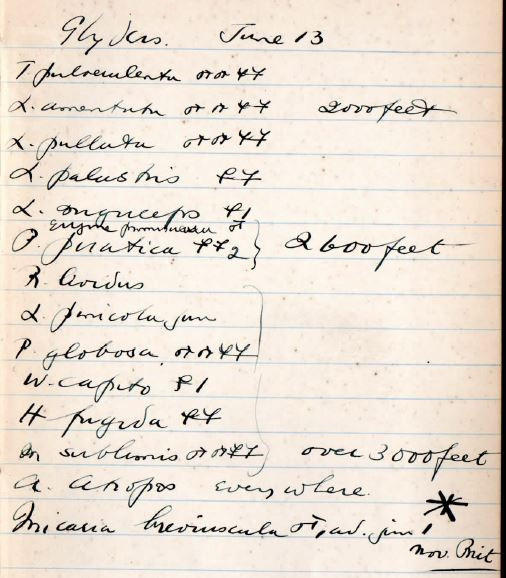 Glyders. June 13
T pulverulenta ♂♂ ♀♀
L. amentata ♂♂ ♀♀ 2000 feet
L. pullata ♂♂ ♀♀
L. palustris ♀♀
L. ♀1
♂
P. piratica ♀♀ 2 } 2600 feet
R. lividus
L. pinicola, juv
P. globosa ♂♂ ♀♀
W. capito ♀1
H frigida ♀♀
M sublimis ♂♂ ♀♀ } over 3000 feet
A. atropos everywhere.
Micaria breviuscula ♂, ad. juv 1 *
nov. Brit